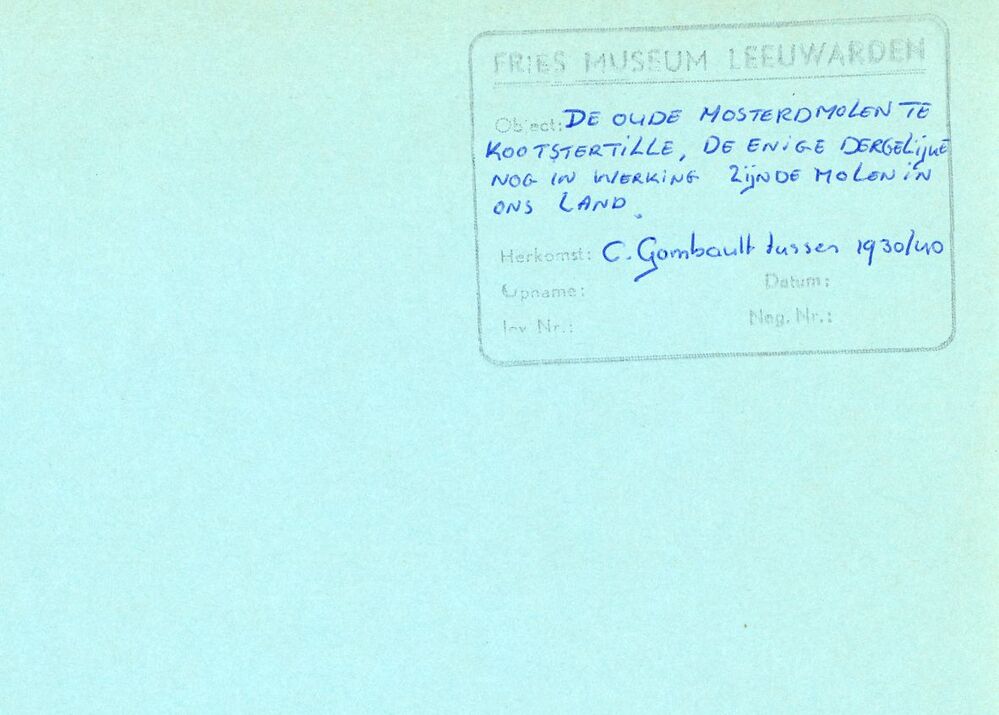 FRIES MUSEUM LEEUWARDEN
Object: DE OUDE MOSTERDMOLEN TE
KOOTSTERTILLE, DE ENIGE DERGELIJKE
NOG IN WERKING ZIJNDE MOLEN IN
ONS LAND.
Herkomst: C. Gombault tussen 1930/40
Opname: Datum:
Inv. Nr.: Neg. Nr.: